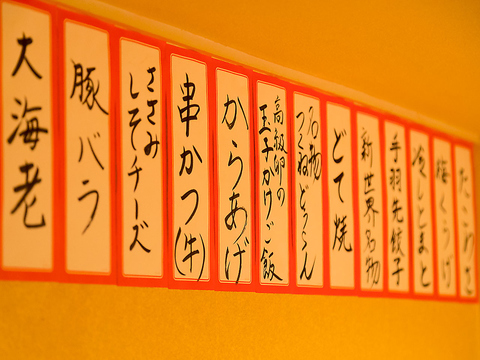 たこわさ
梅くらげ
冷しとまと
手羽先餃子
新世界名物
どて焼
名物
つくね
高級卵の
玉子かけご飯
からあげ
串かつ(牛)
ささみ
しそチーズ
豚バラ
大海老